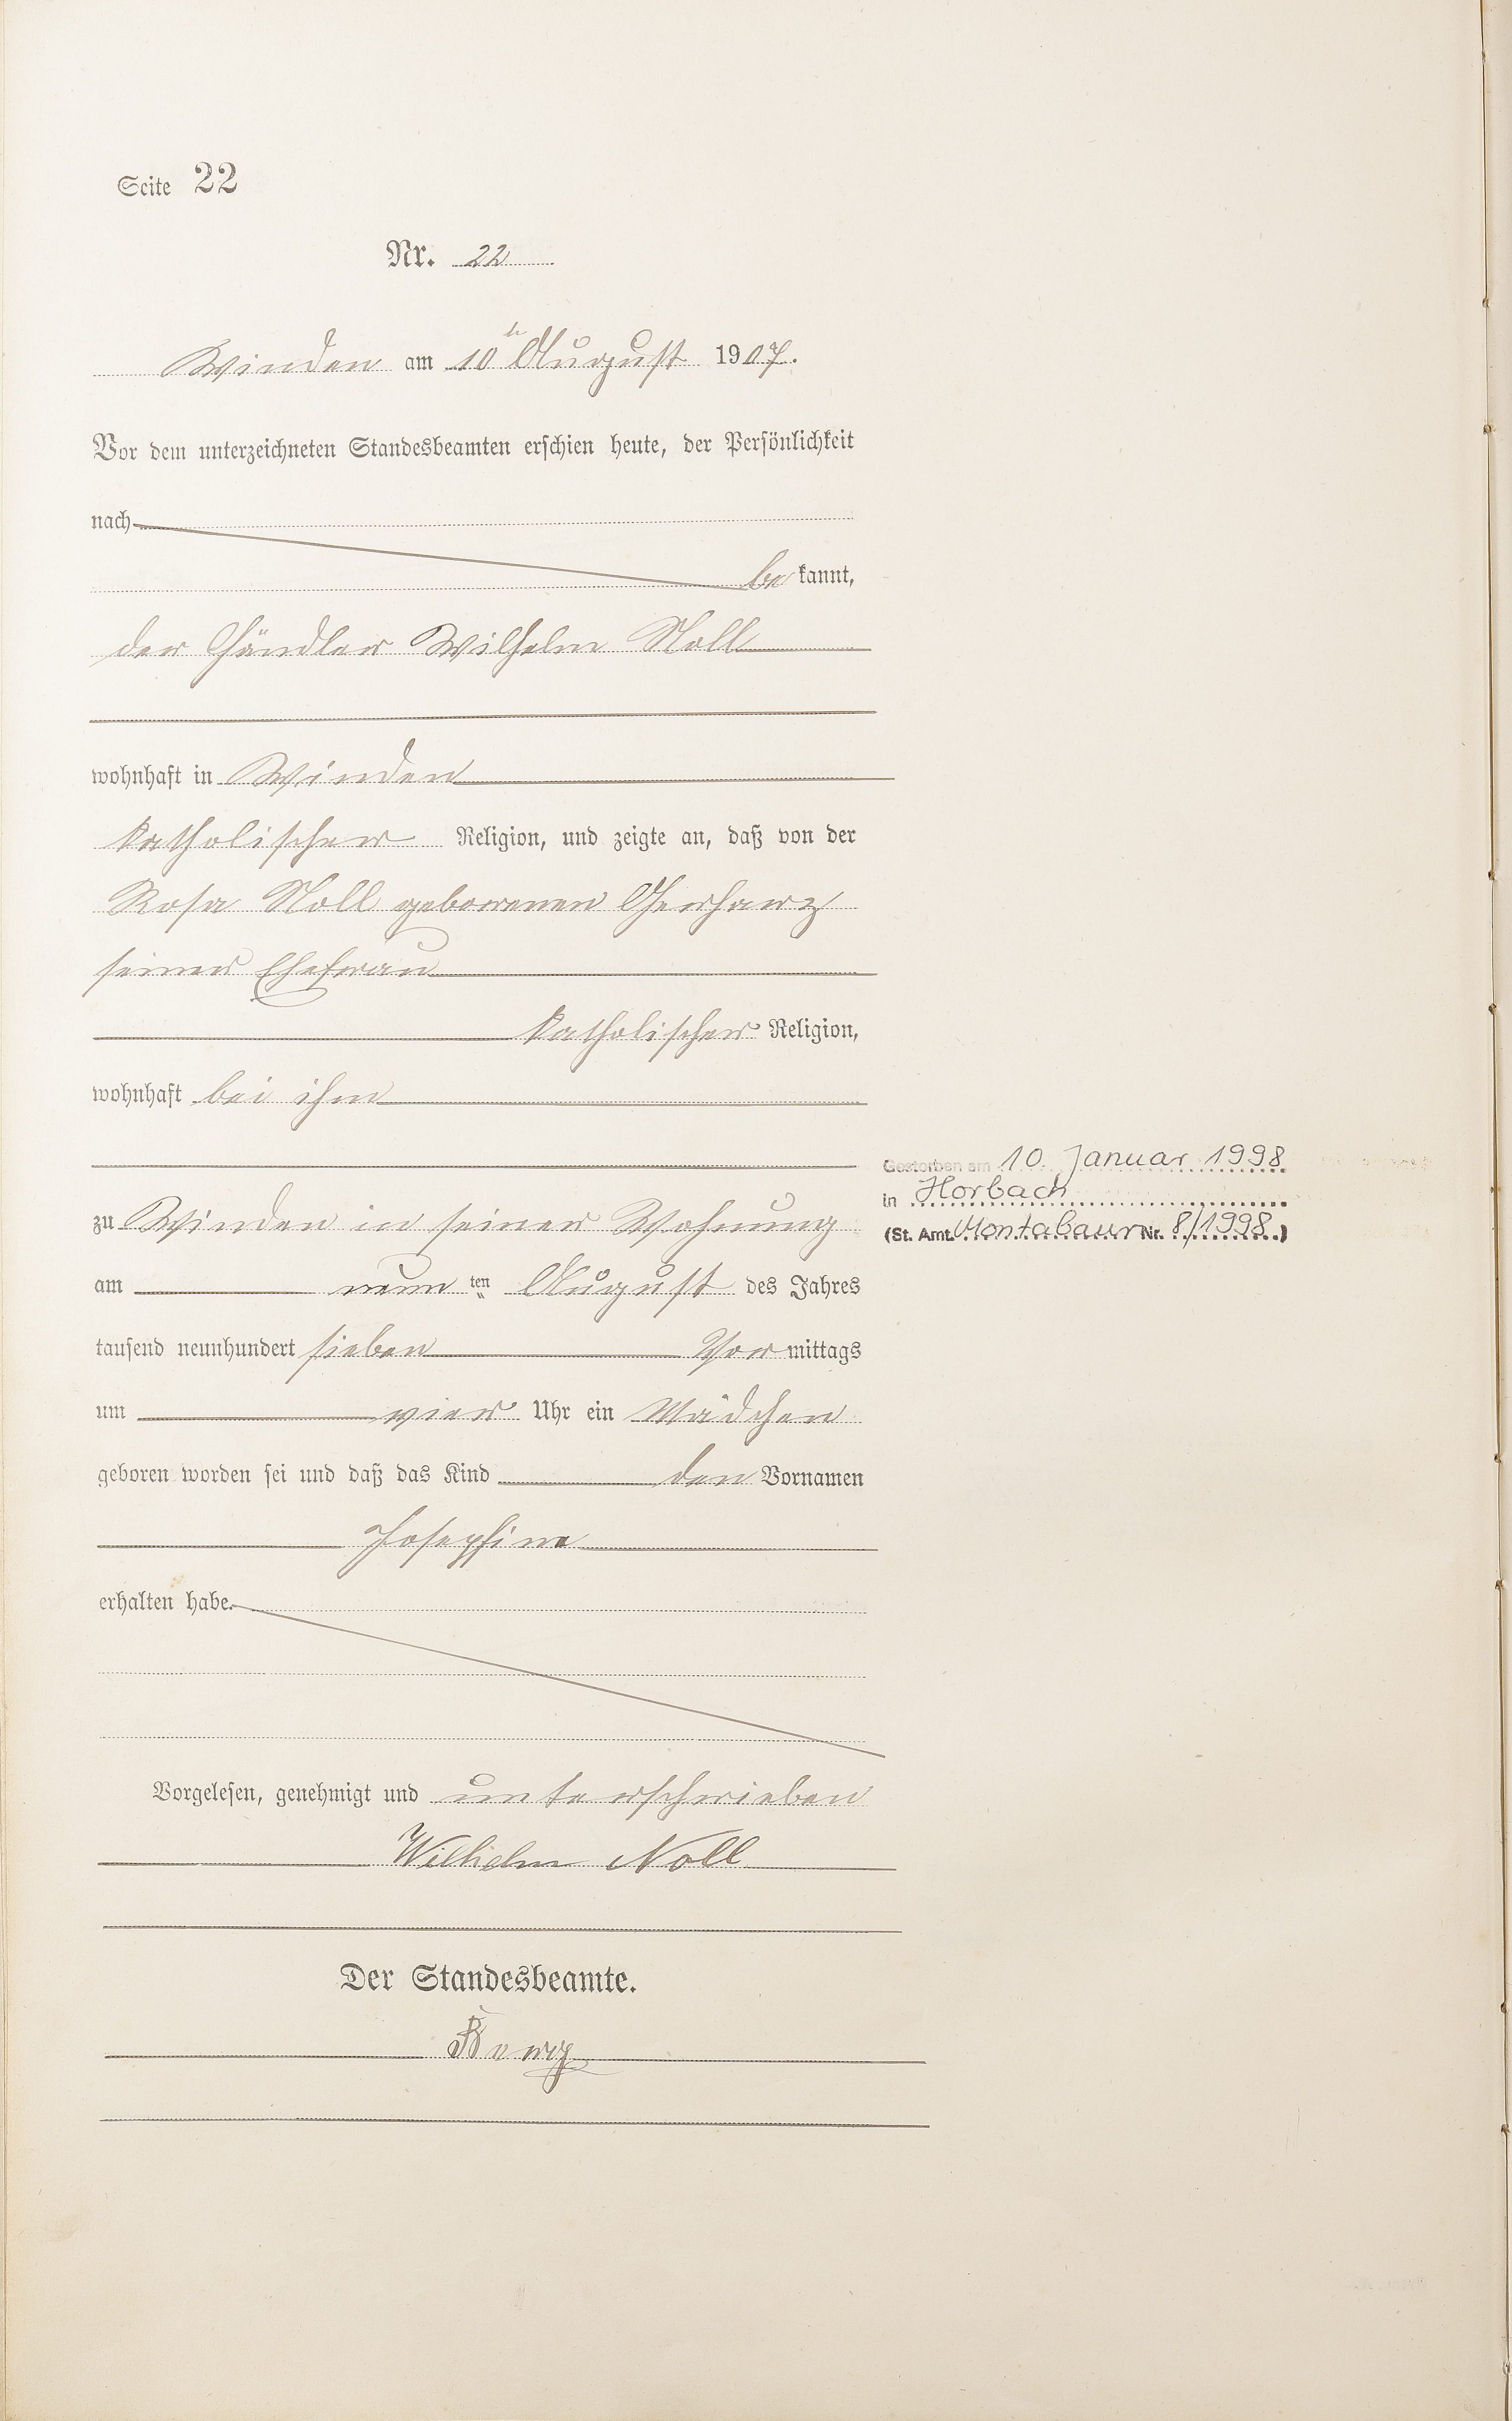 Seite 22
Nr. 22
Winden am 10ten August 1907.
Vor dem unterzeichneten Standesbeamten erschien heute, der Persönlichkeit
nach
be kannt,
der Händler Wilhelm Noll
wohnhaft in Winden
katholischer Religion, und zeigte an, daß von der
Rosa Noll geborenen Gerharz
seiner Ehefrau
katholischer Religion,
wohnhaft bei ihm
Gestorben am 10. Januar 1998
in Horbach
(St. Amt. Montabaur Nr. 8/1998)
zu Winden in seiner Wohnung
am neun ten August des Jahres
tausend neunhundert sieben Vor mittags
um vier Uhr ein Mädchen
geboren worden sei und daß das Kind den Vornamen
Josephine
erhalten habe.
Vorgelesen, genehmigt und unterschrieben
Wilhelm Noll
Der Standesbeamte.